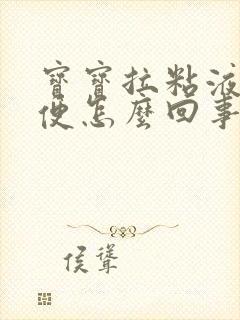 寶寶拉粘液
便怎麼回事
侯聳